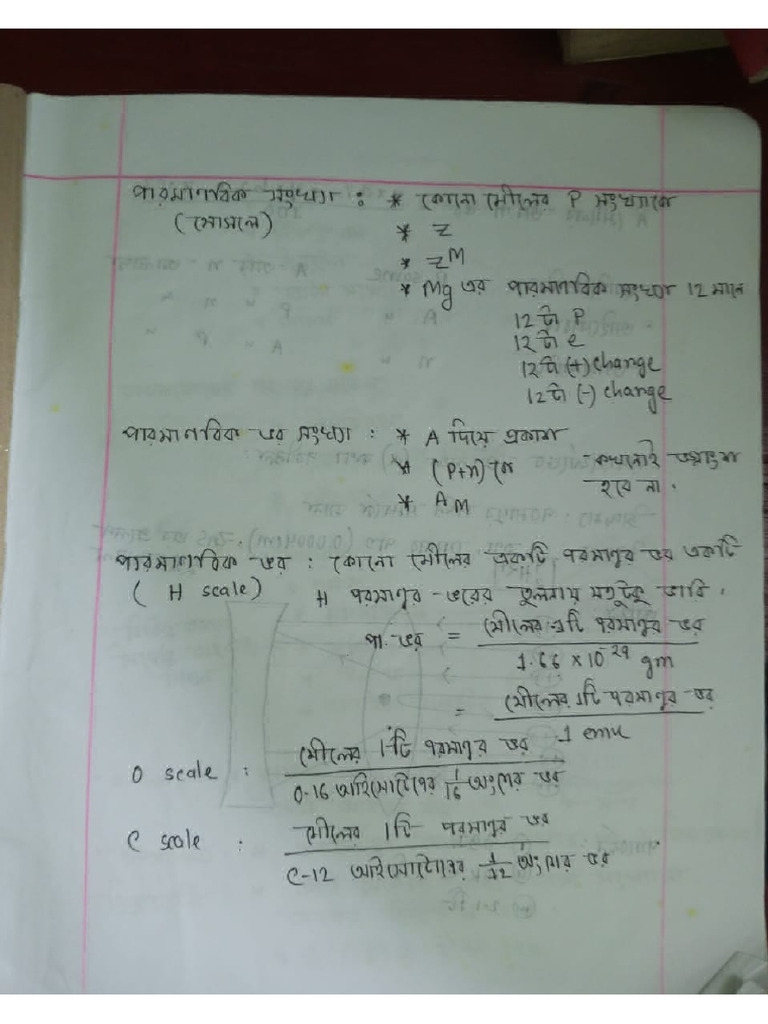 পারমাণবিক সংখ্যা : * কোনো মৌলের P সংখ্যাকে
(মোসলে) * Z
* Z^M
* Mg এর পারমাণবিক সংখ্যা 12 মানে
12টা P
12টা e
12টা (+) change
12টা (-) change
পারমাণবিক ভর সংখ্যা : * A দিয়ে প্রকাশ
* (P+n) কে - কখনোই ভগ্নাংশ হবে না।
* A_M
পারমাণবিক ভর : কোনো মৌলের একটি পরমাণুর ভর একটি
( H scale) H পরমাণুর ভরের তুলনায় যতটুকু ভারি।
পা. ভর = মৌলের 1টি পরমাণুর ভর / 1.66 × 10^-24 gm
= মৌলের 1টি পরমাণুর ভর / 1 emu
O scale : মৌলের 1টি পরমাণুর ভর / O-16 আইসোটোপের 1/16 অংশের ভর
C scale : মৌলের 1টি পরমাণুর ভর / C-12 আইসোটোপের 1/12 অংশের ভর